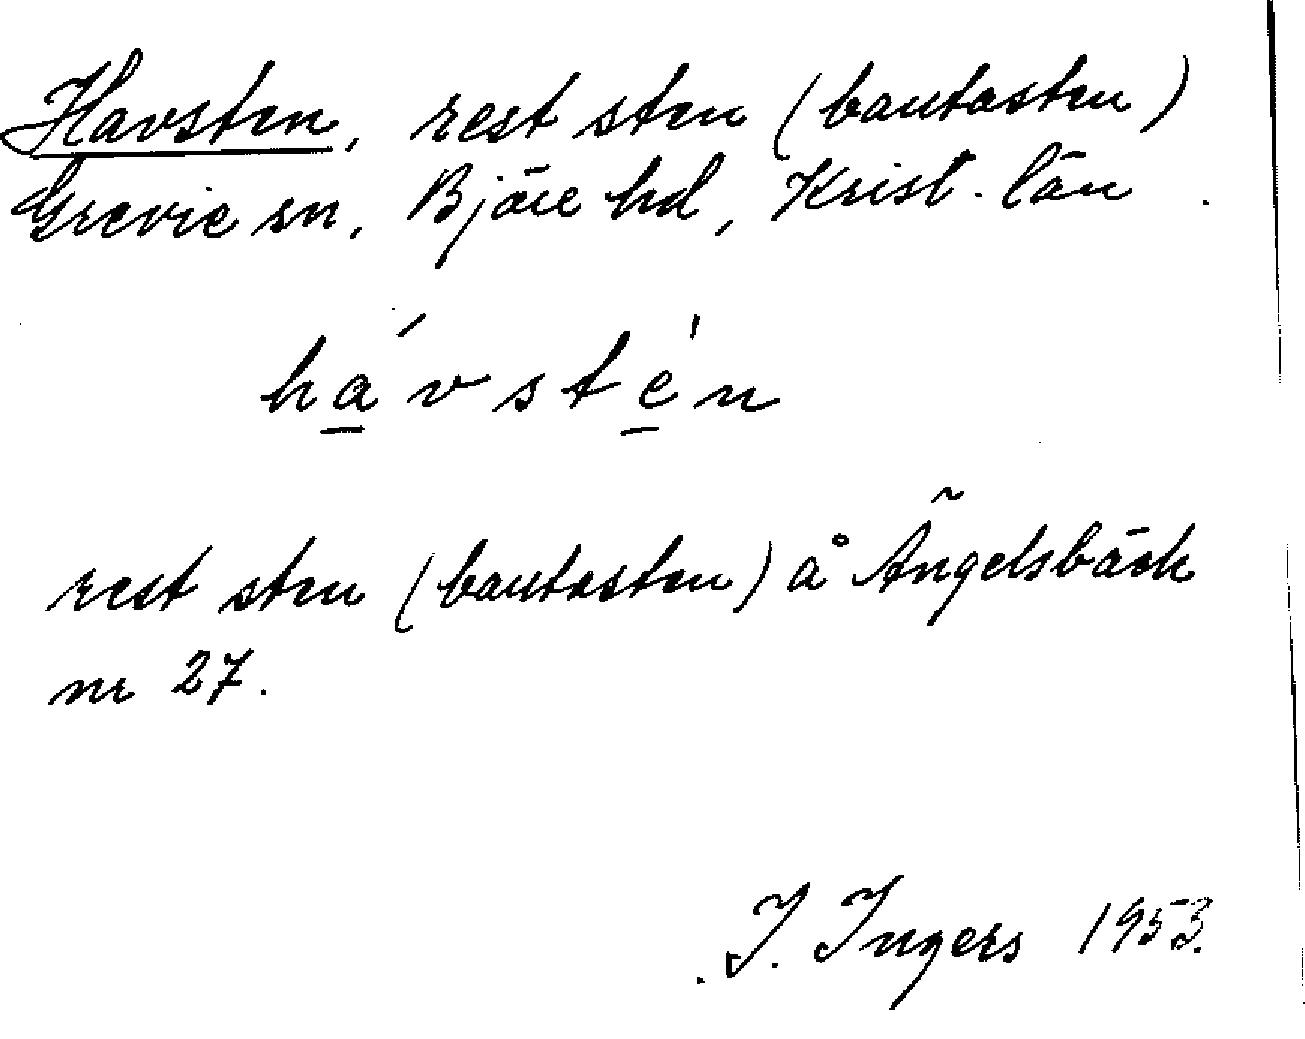 Havsten, rest sten (bautasten)
Grevie sn, Bjäre hd, Krist. län.
hávstén
rest sten (bautasten) å Ängelsbäck
nr 27.
I. Ingers 1953.